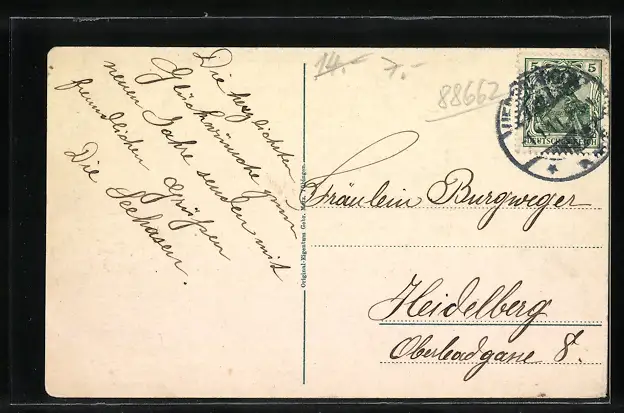 Die herzlichsten
Glückwünsche zum
neuen Jahre senden mit
freundlichen Grüßen
Die Seehasen.
14.- 7.-
88662
5 5
DEUTSCHES REICH
Original-Eigentum Gebr. Metz, Tübingen.
Fräulein Burgweger
Heidelberg
Oberbadgasse 8.